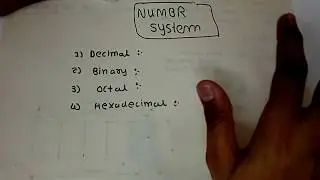 NUMBR
System
1) Decimal :-
2) Binary :-
3) Octal :-
4) Hexadecimal :-